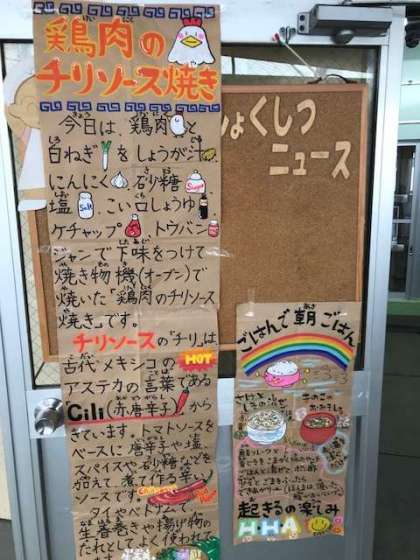 鶏肉の
チリソース焼き
今日は、鶏肉と
白ねぎをしょうが汁、
にんにく、砂糖、
塩、こい口しょうゆ、
ケチャップ、トウバン
ジャンで下味をつけて
焼き物機(オーブン)で
焼いた「鶏肉のチリソース
焼き」です。
チリソースの「チリ」は、
古代メキシコの
HOT
アステカの言葉である
「Cili(赤唐辛子)」から
きています。トマトソースを
ベースに唐辛子や塩、
スパイスや砂糖などを
加えて、煮て作る辛い
ソースです。
タイやベトナムで、
生春巻きや揚げ物の
たれとしてよく使われて
Sugar
Salt
しょくしつ
ニュース
ごはんで朝ごはん
きのこの
起きるの楽しみ
HHA